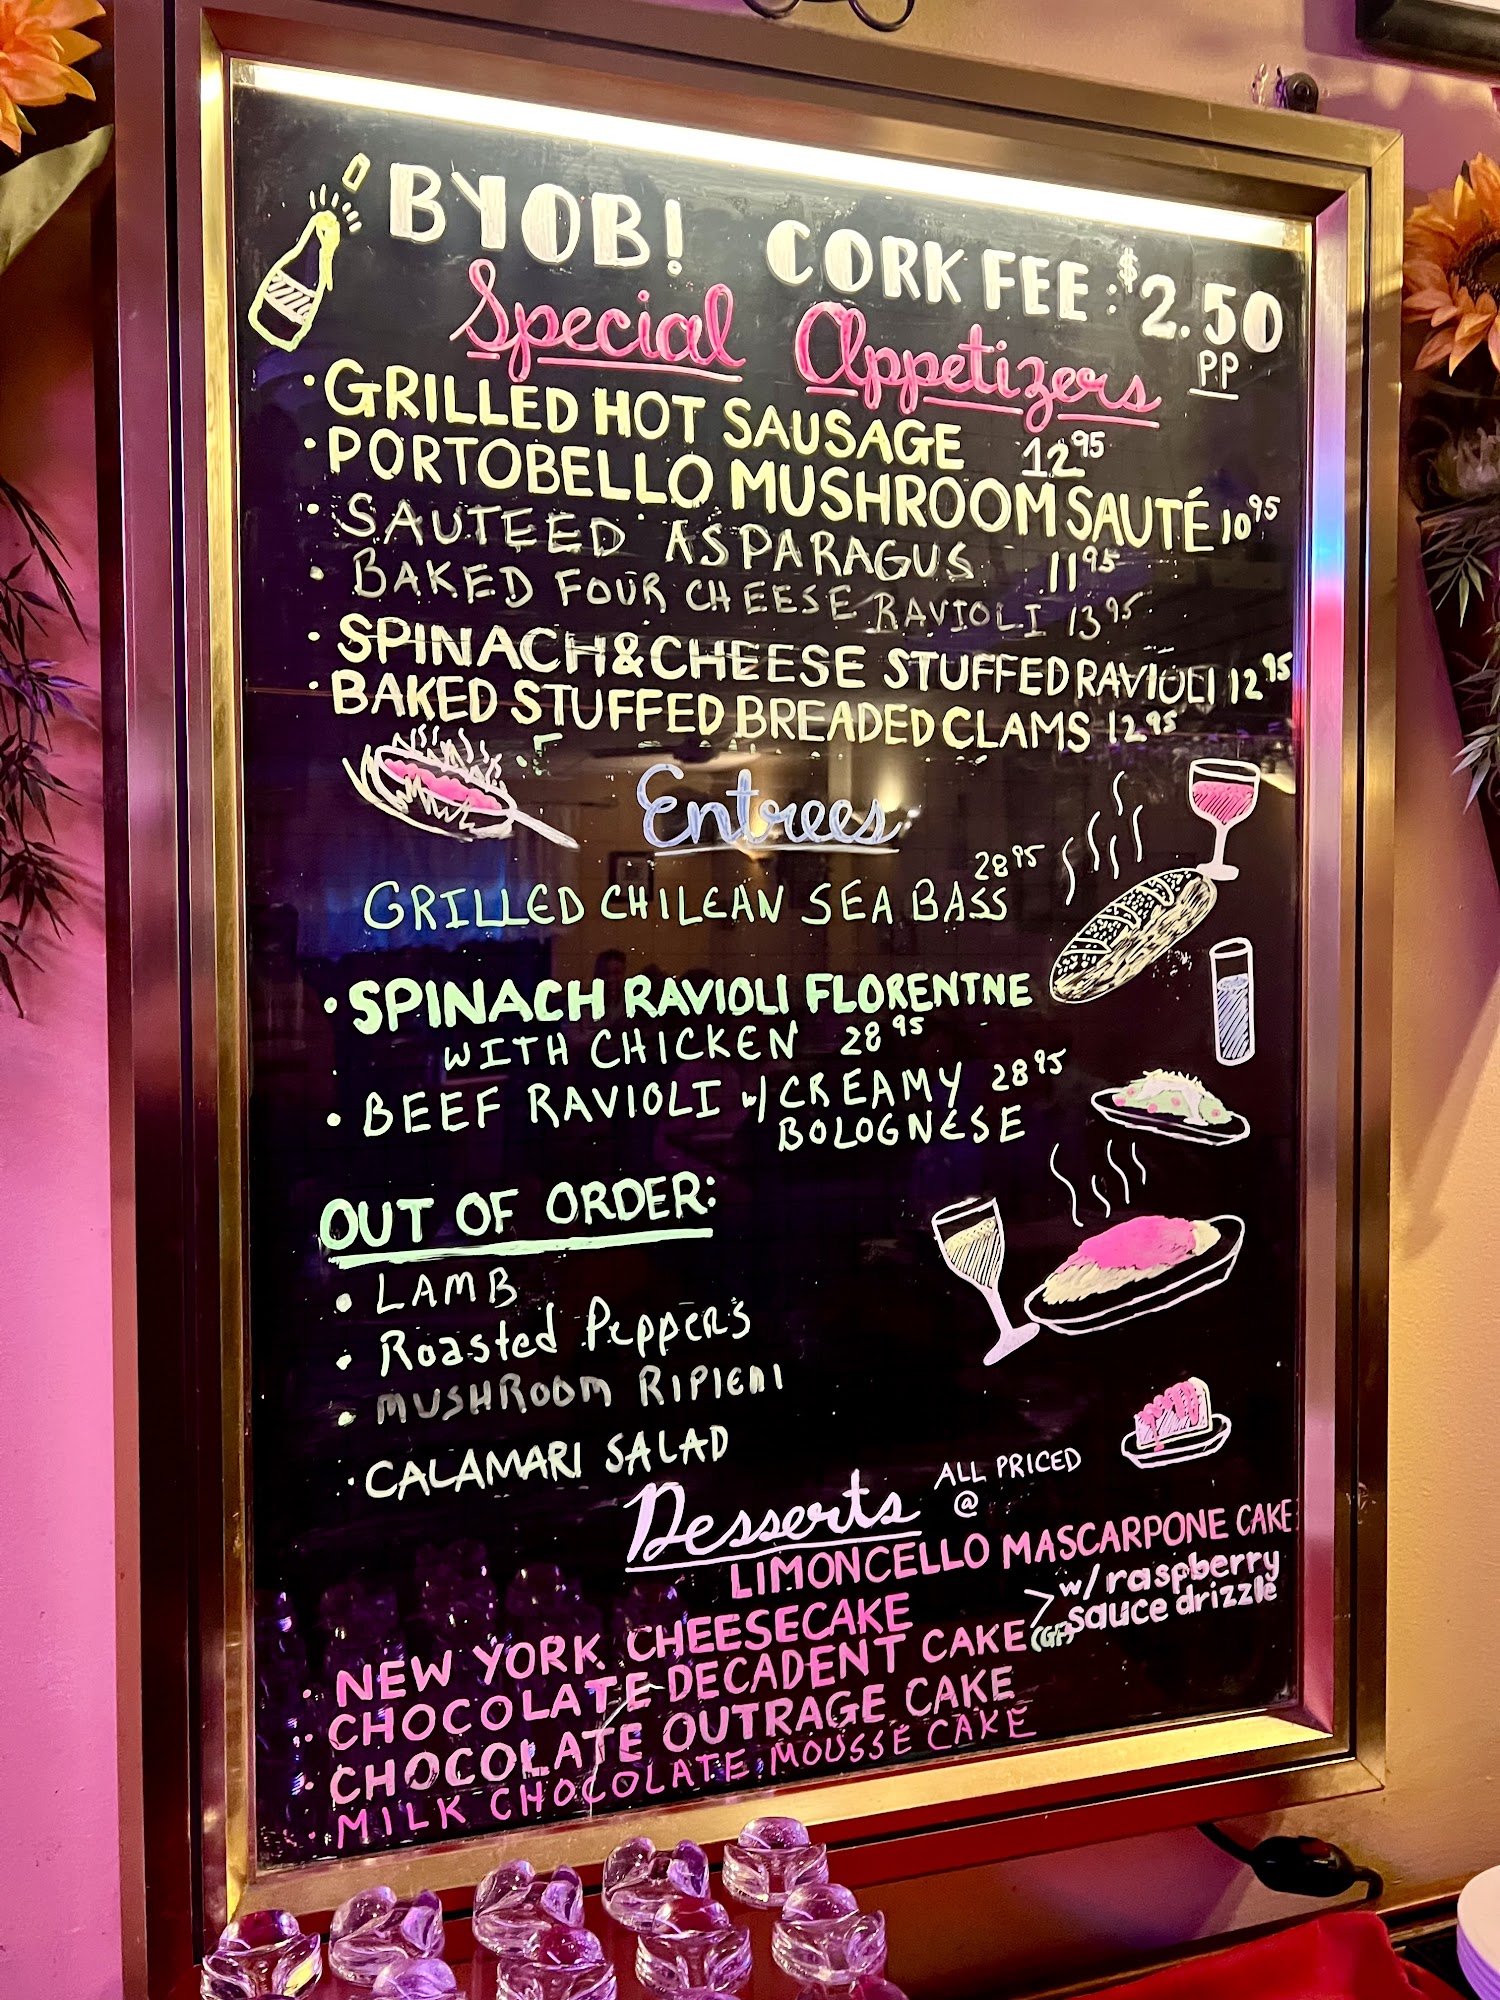 BYOB! CORK FEE: $2.50
PP
Special Appetizers
· GRILLED HOT SAUSAGE 12 95
· PORTOBELLO MUSHROOM SAUTÉ 10 95
· SAUTEED ASPARAGUS 11 95
· BAKED FOUR CHEESE RAVIOLI 13 95
· SPINACH & CHEESE STUFFED RAVIOLI 12 95
· BAKED STUFFED BREADED CLAMS 12 95
Entrees
GRILLED CHILEAN SEA BASS 28 95
· SPINACH RAVIOLI FLORENTNE
WITH CHICKEN 28 95
· BEEF RAVIOLI w/ CREAMY 28 95
BOLOGNESE
OUT OF ORDER:
· LAMB
· Roasted Peppers
· MUSHROOM RIPIENI
· CALAMARI SALAD
Desserts ALL PRICED
@
LIMONCELLO MASCARPONE CAKE
· NEW YORK CHEESECAKE > w/ raspberry
sauce drizzle
· CHOCOLATE DECADENT CAKE (GF)
· CHOCOLATE OUTRAGE CAKE
· MILK CHOCOLATE MOUSSE CAKE